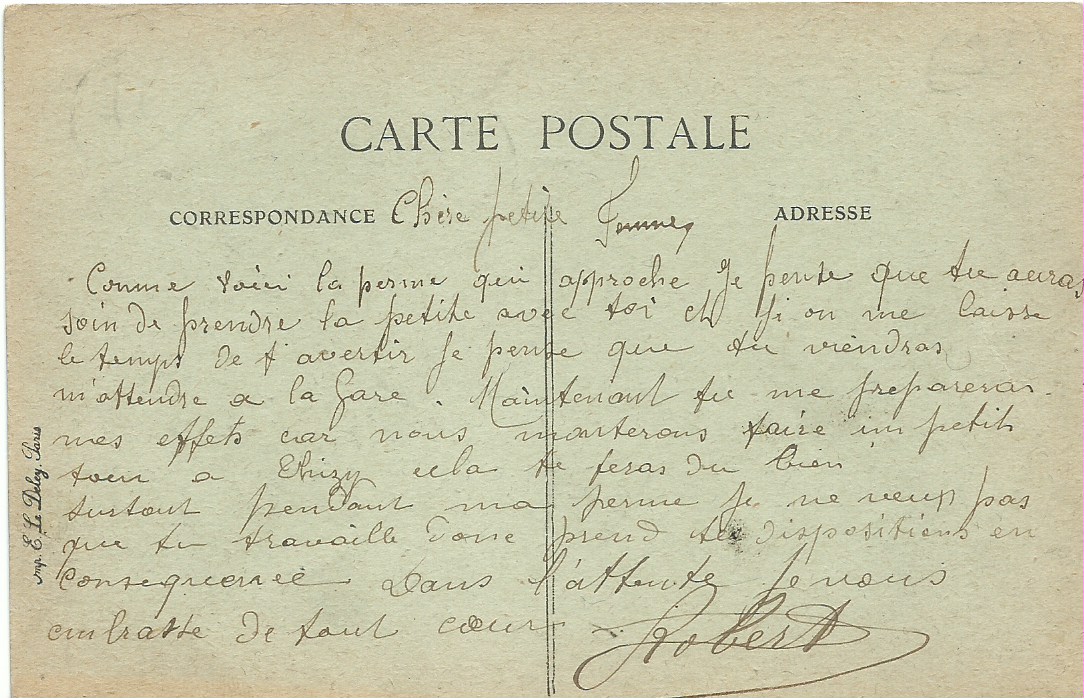 CARTE POSTALE
CORRESPONDANCE Chère petite Femme, ADRESSE
Comme voici la perme qui approche Je pense que tu auras
soin de prendre la petite avec toi et si on me laisse
le temps de t avertir Je pense que tu viendras
m'attendre a la Gare. Maintenant tu me prepareras
mes effets car nous monterons faire un petit
tour a Thizy cela te feras du bien
surtout pendant ma perme Je ne veux pas
que tu travaille Donc prend tes dispositions en
consequence Dans l'attente Je vous
embrasse de tout cœur
Robert
Imp. E. Le Deley, Paris